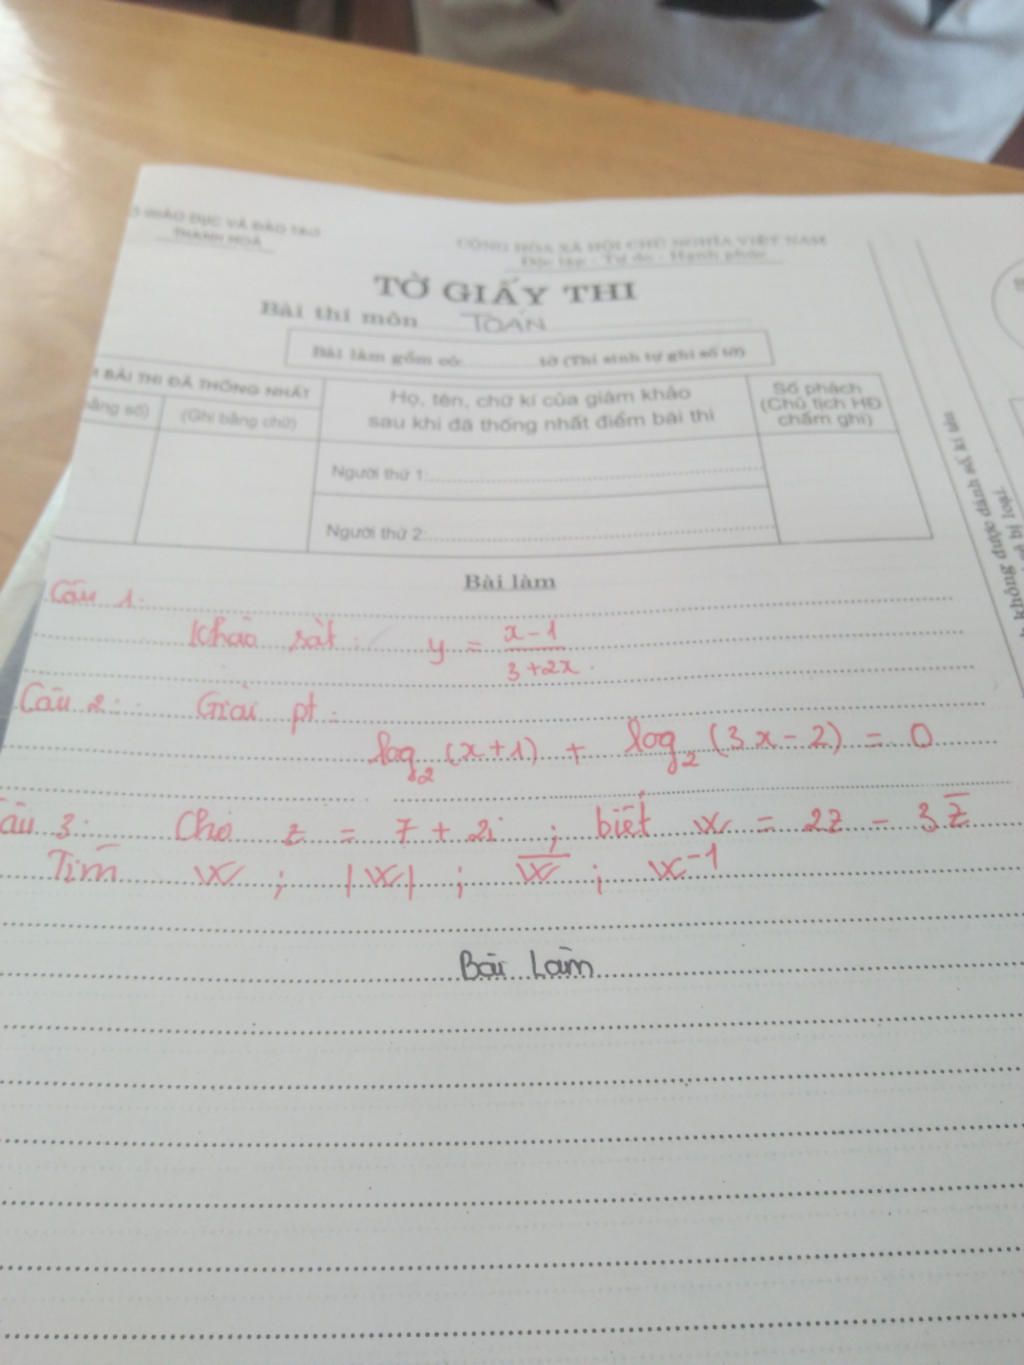 GIÁO DỤC VÀ ĐÀO TẠO
THANH HOÁ
CỘNG HÒA XÃ HỘI CHỦ NGHĨA VIỆT NAM
Độc lập - Tự do - Hạnh phúc
TỜ GIẤY THI
Bài thi môn TOÁN
Bài làm gồm có: tờ (Thí sinh tự ghi số tờ)
BÀI THI ĐÃ THỐNG NHẤT
bằng số)
(Ghi bằng chữ)
Họ, tên, chữ kí của giám khảo
sau khi đã thống nhất điểm bài thi
Số phách
(Chủ tịch HĐ
chấm ghi)
Người thứ 1:
Người thứ 2:
không được đánh số, kí tên
bị loại.
Bài làm
Câu 1.
Khảo sát: y = \frac{x-1}{3+2x}.
Câu 2: Giải pt:
log₂(x+1) + log₂(3x-2) = 0
Câu 3: Cho z = 7 + 2i ; biết w = 2z - 3z̅
Tìm w ; |w| ; w̅ ; w⁻¹
Bài Làm